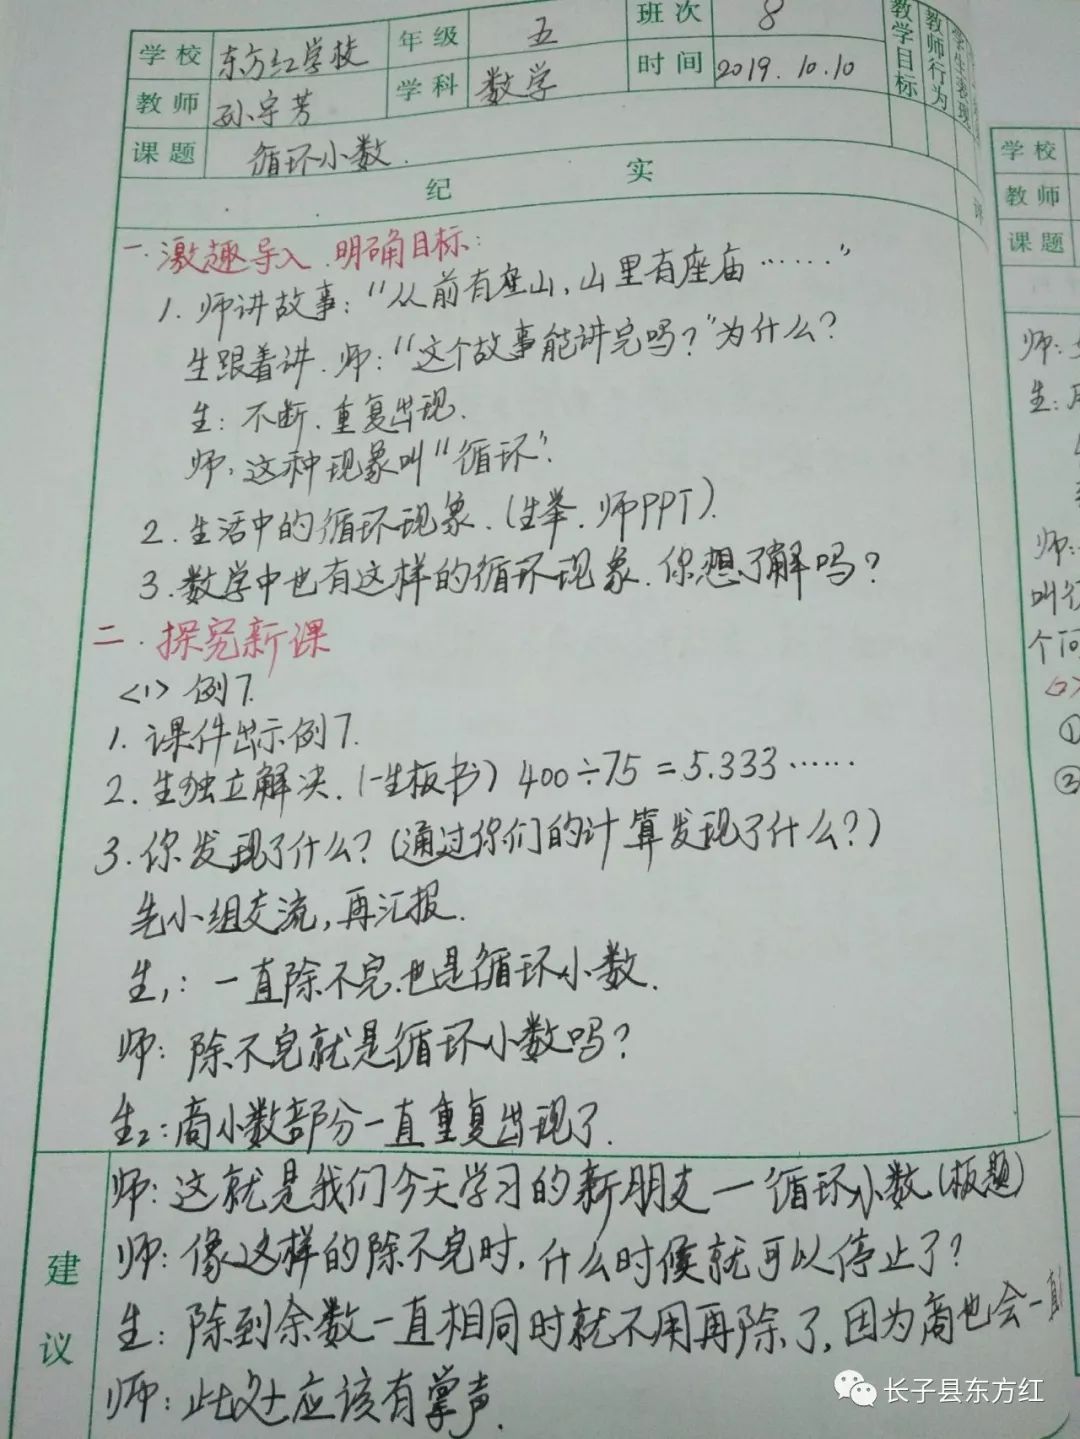 学校 东方红学校 年级 五 班次 8
教师 孙宇芳 学科 数学 时间 2019.10.10
课题 循环小数.
教学目标
教师行为
学生表现
纪 实
评
一.激趣导入.明确目标:
1.师讲故事:“从前有座山,山里有座庙……”
生跟着讲.师:“这个故事能讲完吗?”为什么?
生:不断.重复出现.
师:这种现象叫“循环”.
2.生活中的循环现象.(生举.师PPT).
3.数学中也有这样的循环现象.你想了解吗?
二.探究新课
<1>例7.
1.课件出示例7.
2.生独立解决.(一生板书)400÷75=5.333……
3.你发现了什么?(通过你们的计算发现了什么?)
先小组交流,再汇报.
生1:一直除不完.也是循环小数.
师:除不完就是循环小数吗?
生2:商小数部分一直重复出现了.
建议
师:这就是我们今天学习的新朋友一循环小数(板题)
师:像这样的除不完时,什么时候就可以停止了?
生:除到余数一直相同时就不用再除了,因为商也会一直
师:此处应该有掌声.
学校
教师
课题
师:
生:
师:
叫
个问
<2>
①
③
长子县东方红